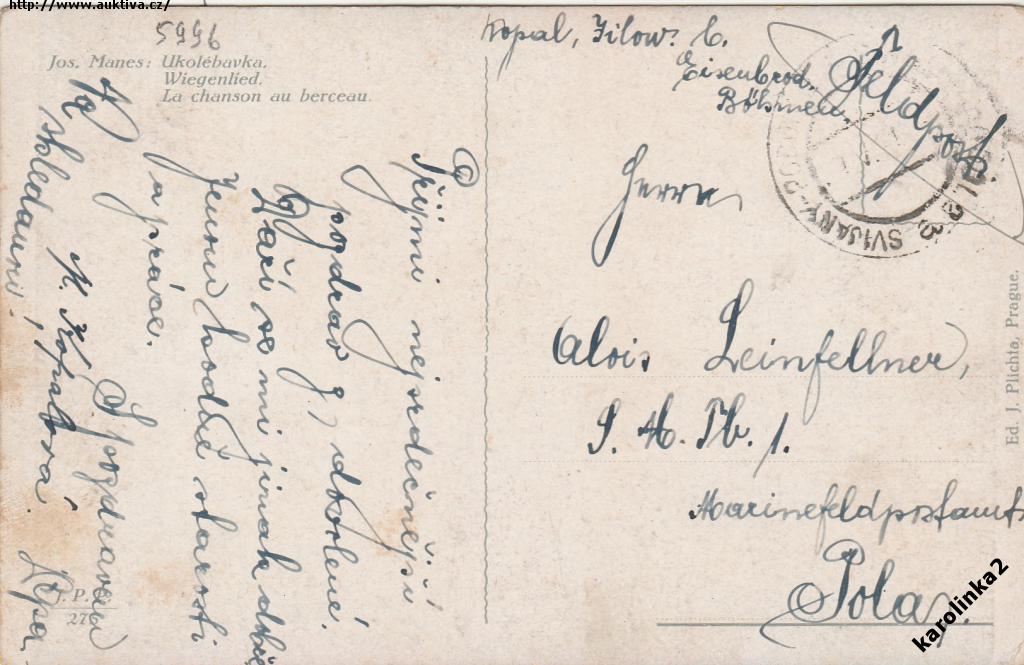 http://www.auktiva.cz/
5996
Jos. Manes: Ukolébavka.
Wiegenlied.
La chanson au berceau.
Kopal, Jilow. č.
Eisenbrod.
Böhmen
Feldpost.
SVIJANY-POD
Herrn
Alois Leinfellner,
S. M. Tb. 1.
Marinefeldpostamt
Pola
Přijmi nejsrdečnější
pozdrav z dovolené.
Daří se mi jinak dobře
jenom hodně starosti
a práce.
S pozdravem
Na shledanou!
Ed. J. Plichta, Prague.
J. P. P.
276
karolinka2